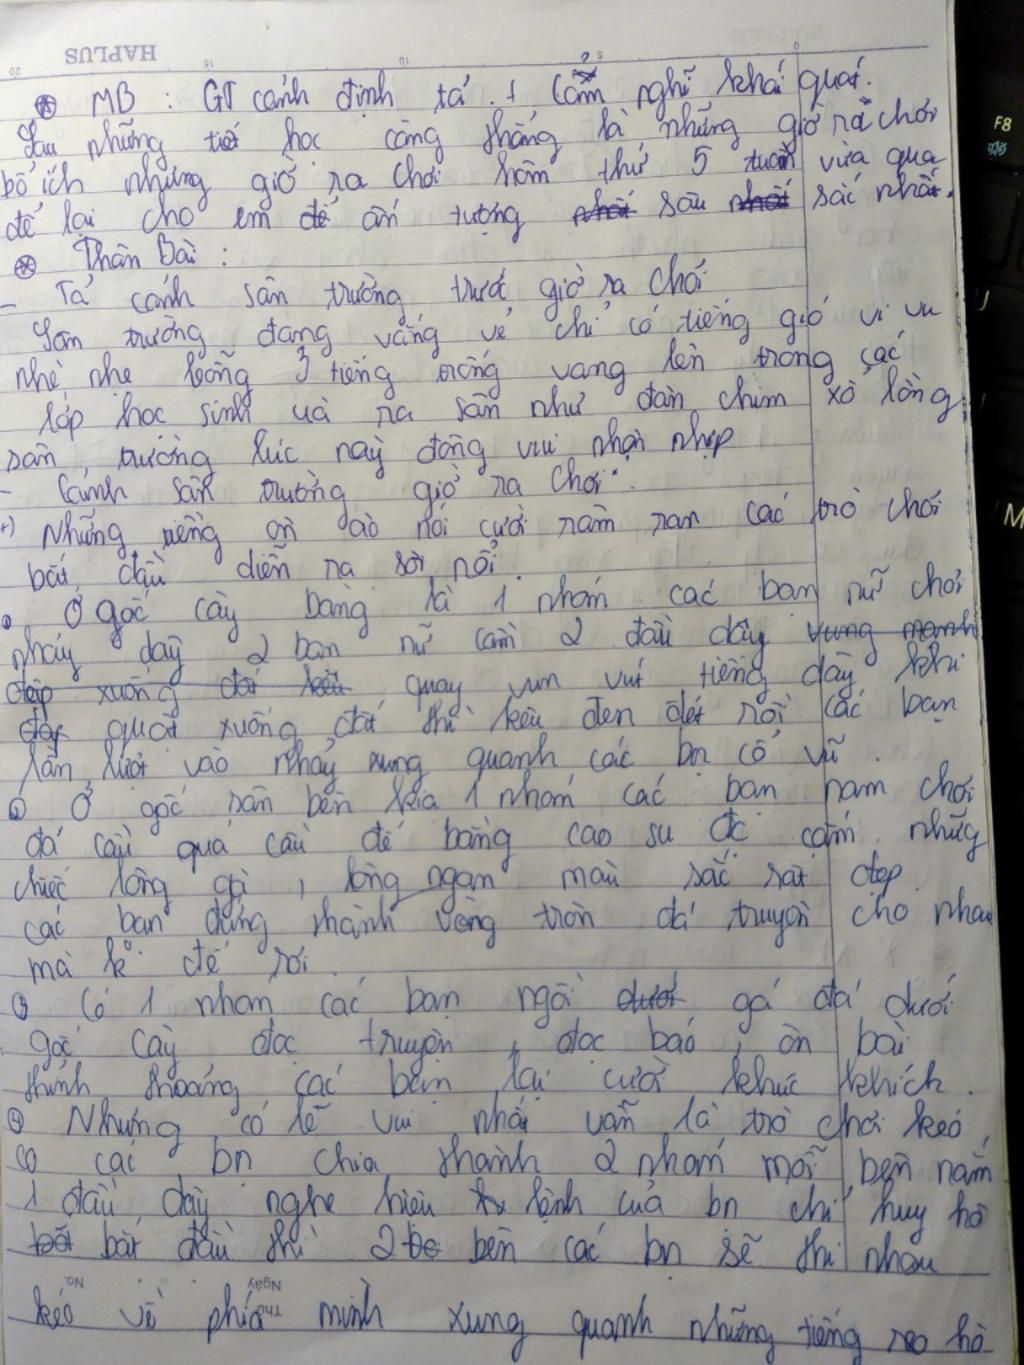 HAPLUS
20 15 10 5 0
MB : GT cảnh định tả . + Cảm nghĩ khái quát.
Sau những tiết học căng thẳng là những giờ ra chơi
bổ ích nhưng giờ ra chơi hôm thứ 5 tuần vừa qua
để lại cho em để ấn tượng nhất sâu nhất sắc nhất.
Thân Bài :
- Tả cảnh sân trường trước giờ ra chơi
Sân trường đang vắng vẻ chỉ có tiếng gió vi vu
nhè nhẹ bỗng 3 tiếng trống vang lên trong các
lớp học sinh ùa ra sân như đàn chim xổ lồng
sân trường lúc này đông vui nhộn nhịp
- Cảnh sân trường giờ ra chơi :
+) Những tiếng ồn ào nói cười râm ran các trò chơi
bắt đầu diễn ra sôi nổi .
Ở gốc cây bàng là 1 nhóm các bạn nữ chơi
nhảy dây 2 bạn nữ cầm 2 đầu dây vung mạnh
đập xuống đất quay vun vút tiếng dây khi
đập quất xuống đất thì kêu đen đét rồi các bạn
lần lượt vào nhảy xung quanh các bn cổ vũ .
Ở gốc sân bên kia 1 nhóm các bạn nam chơi
đá cầu quả cầu đế bằng cao su đc cắm những
chiếc lông gà , lông ngan màu sắc rất đẹp .
các bạn đứng thành vòng tròn đá truyền cho nhau
mà k để rơi .
Có 1 nhóm các bạn ngồi dưới gế đá dưới
gốc cây đọc truyện , đọc báo , ôn bài
thỉnh thoảng các bạn lại cười khúc khích .
Nhưng có lẽ vui nhất vẫn là trò chơi kéo
co các bn chia thành 2 nhóm mỗi bên nắm
1 đầu dây nghe hiệu lệnh của bn chỉ huy hô
bắt đầu thì 2 bên các bn sẽ thi nhau
No. Ngày Thứ
kéo về phía mình xung quanh những tiếng reo hò
F8
U
M